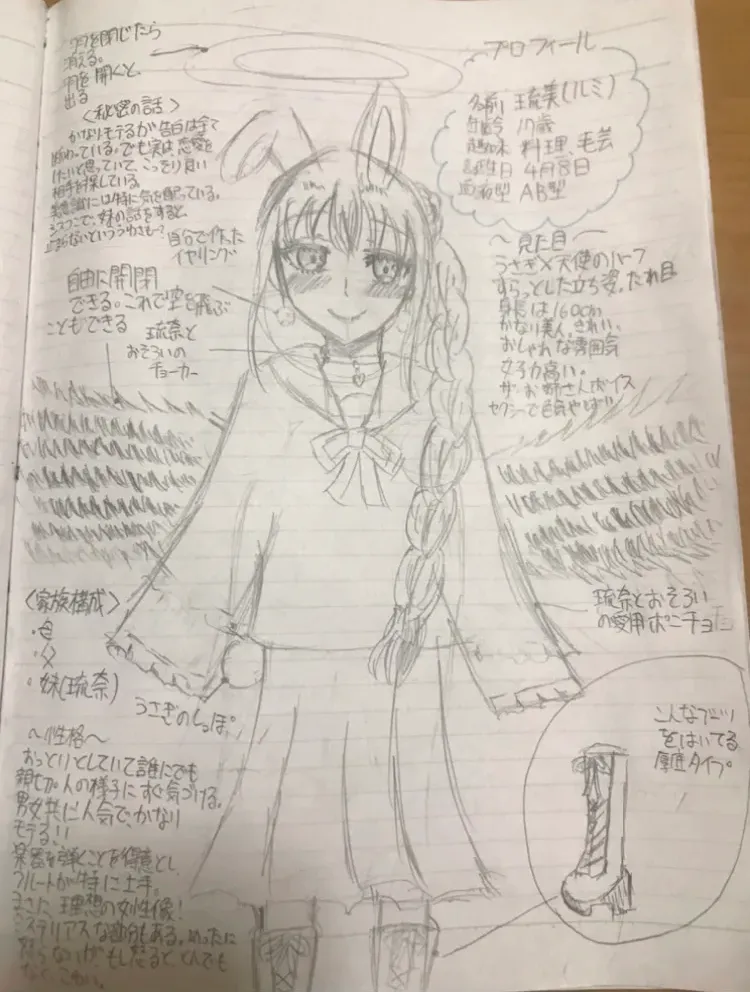 羽を閉じたら
消える。
羽を開くと
出る
〈秘密の話〉
かなりモテるが告白は全て
断わっている。でも実は恋愛を
したいと思っていて、こっそり良い
相手を探している。
美意識には特に気を配っている。
シスコンで、妹の話をすると
止まらないといううわさも…?
自分で作った
イヤリング
自由に開閉
できる。これで空を飛ぶ
こともできる
琉奈と
おそろいの
チョーカー
プロフィール
名前 琉美(ルミ)
年齢 17歳
趣味 料理、手芸
誕生日 4月8日
血液型 AB型
〜見た目〜
うさぎ×天使のハーフ
すらっとした立ち姿。たれ目
身長は160cm
かなり美人。きれい。
おしゃれな雰囲気
女子力高い。
ザ・お姉さんボイス
セクシーで色気やばい
琉奈とおそろい
の愛用ポンチョ
〈家族構成〉
・母
・父
・妹(琉奈)
うさぎのしっぽ。
〜性格〜
おっとりとしていて誰にでも
親切。人の様子にすぐ気づける。
男女共に人気で、かなり
モテる!!
楽器を弾くことを得意とし、
フルートが特に上手。
まさに、理想の女性像!
ミステリアスな部分もある。めったに
怒らないが、もし怒ると、とんでも
なく、こわい。
こんなブーツ
をはいてる
厚底タイプ。